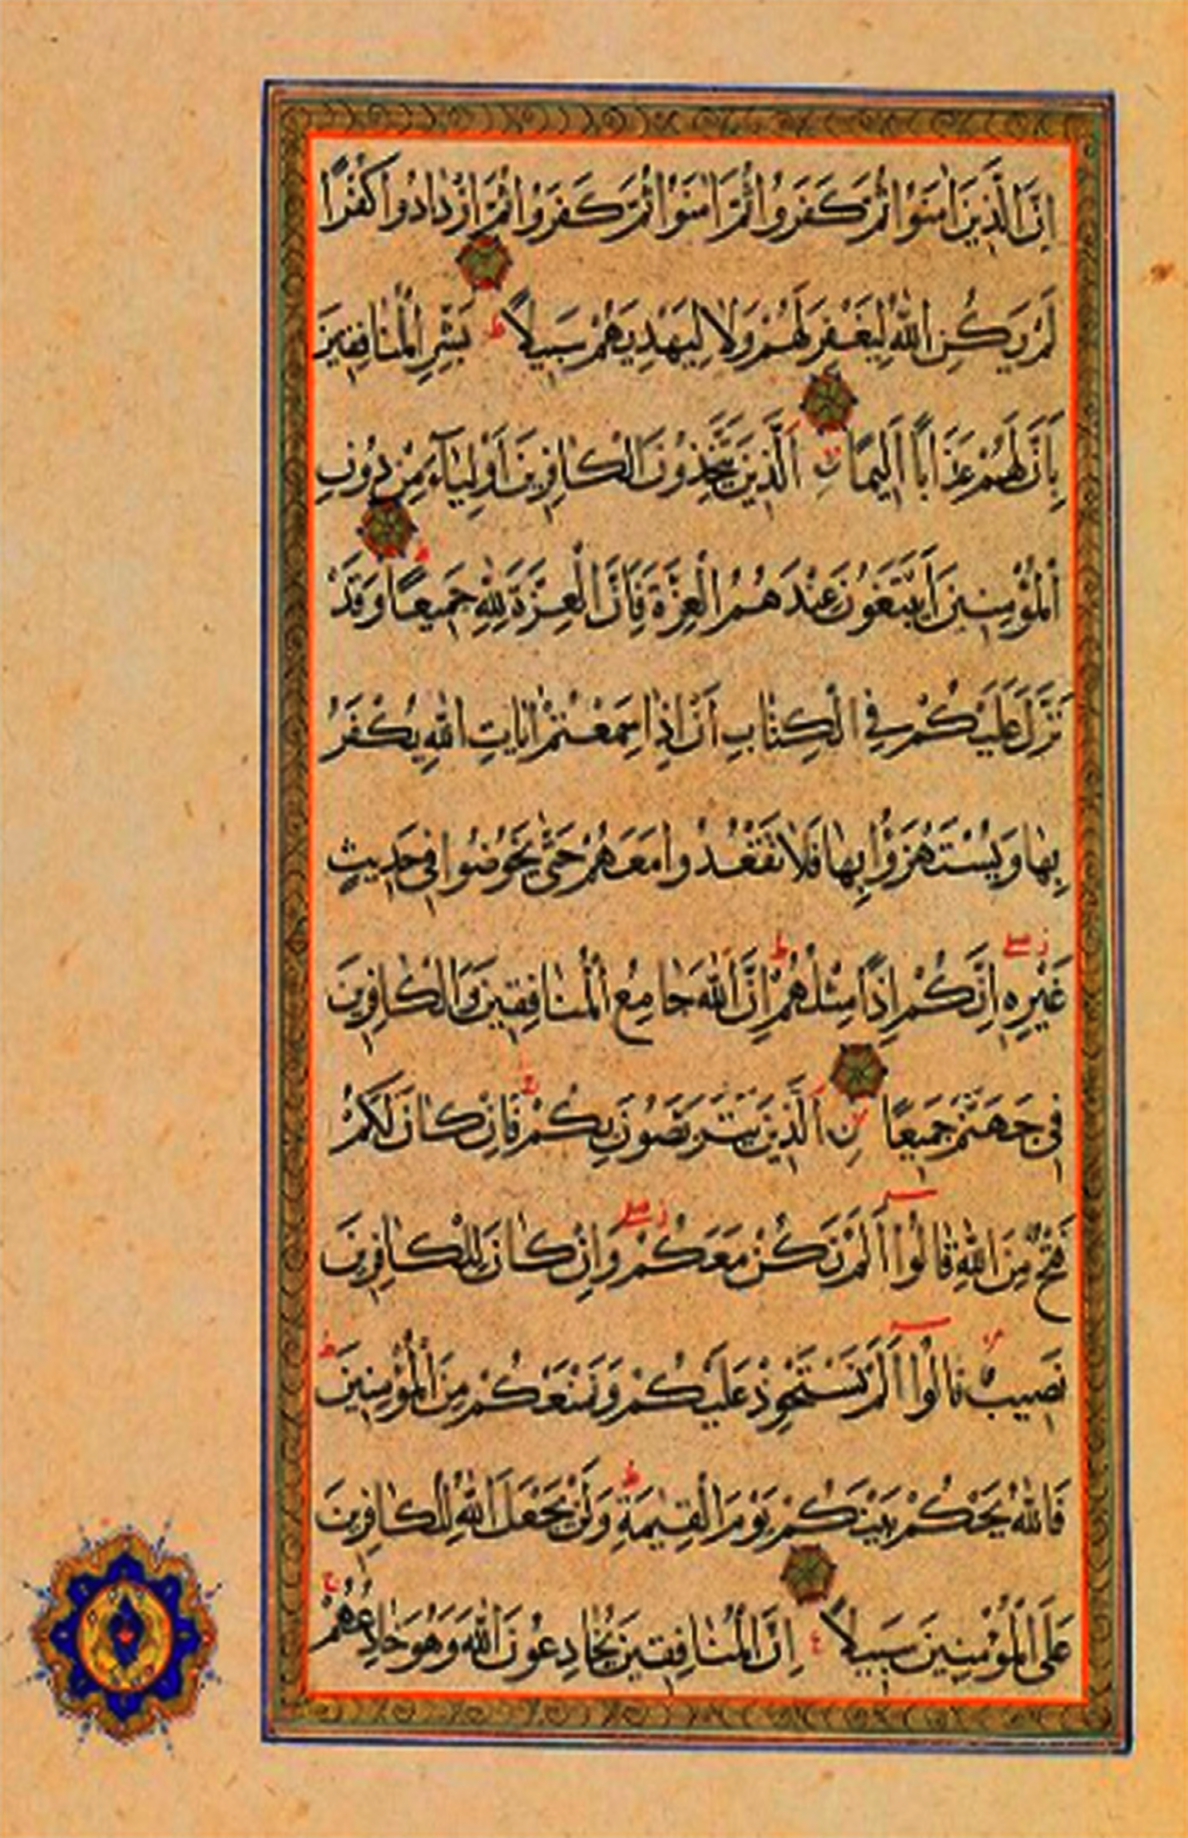 اِنَّ الَّذِينَ اٰمَنُوا ثُمَّ كَفَرُوا ثُمَّ اٰمَنُوا ثُمَّ كَفَرُوا ثُمَّ ازْدَادُوا كُفْرًا
لَمْ يَكُنِ اللّٰهُ لِيَغْفِرَ لَهُمْ وَلَا لِيَهْدِيَهُمْ سَبِيلًا ط بَشِّرِ الْمُنَافِقِينَ
بِاَنَّ لَهُمْ عَذَابًا اَلِيمًا نِ الَّذِينَ يَتَّخِذُونَ الْكَافِرِينَ اَوْلِيَآءَ مِنْ دُونِ
الْمُؤْمِنِينَ اَيَبْتَغُونَ عِنْدَهُمُ الْعِزَّةَ فَاِنَّ الْعِزَّةَ لِلّٰهِ جَمِيعًا ط وَقَدْ
نَزَّلَ عَلَيْكُمْ فِي الْكِتَابِ اَنْ اِذَا سَمِعْتُمْ اٰيَاتِ اللّٰهِ يُكْفَرُ
بِهَا وَيُسْتَهْزَؤُا بِهَا فَلَا تَقْعُدُوا مَعَهُمْ حَتّٰى يَخُوضُوا فِي حَدِيثٍ
غَيْرِهِ ز صلے اِنَّكُمْ اِذًا مِثْلُهُمْ ط اِنَّ اللّٰهَ جَامِعُ الْمُنَافِقِينَ وَالْكَافِرِينَ
فِي جَهَنَّمَ جَمِيعًا نِ الَّذِينَ يَتَرَبَّصُونَ بِكُمْ ج فَاِنْ كَانَ لَكُمْ
فَتْحٌ مِنَ اللّٰهِ قَالُوا اَلَمْ نَكُنْ مَعَكُمْ ز صلے وَاِنْ كَانَ لِلْكَافِرِينَ
نَصِيبٌ قَالُوا اَلَمْ نَسْتَحْوِذْ عَلَيْكُمْ وَنَمْنَعْكُمْ مِنَ الْمُؤْمِنِينَ ط
فَاللّٰهُ يَحْكُمُ بَيْنَكُمْ يَوْمَ الْقِيٰمَةِ ط وَلَنْ يَجْعَلَ اللّٰهُ لِلْكَافِرِينَ
عَلَى الْمُؤْمِنِينَ سَبِيلًا ع اِنَّ الْمُنَافِقِينَ يُخَادِعُونَ اللّٰهَ وَهُوَ خَادِعُهُمْ ج